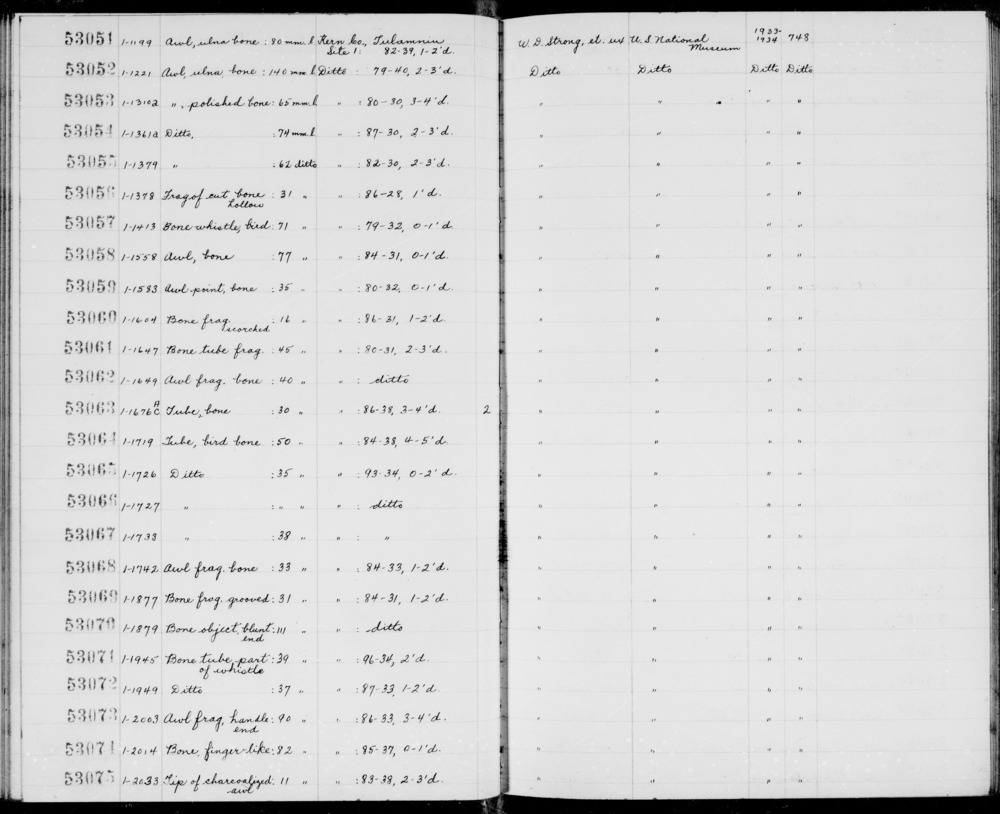 53051 1-1199 Awl, ulna bone : 80 mm. l Kern Co., Tulamniu Site 1: 82-39, 1-2'd. W. D. Strong, et. ux U. S. National Museum 1933-1934 748
53052 1-1221 Awl, ulna, bone : 140 mm. l Ditto : 79-40, 2-3'd. Ditto Ditto Ditto Ditto
53053 1-1310a ", polished bone : 65 mm. l " : 80-30, 3-4'd. " " " "
53054 1-1361a Ditto, : 74 mm. l " : 87-30, 2-3'd. " " " "
53055 1-1379 " : 62 ditto " : 82-30, 2-3'd. " " " "
53056 1-1378 Frag of cut bone hollow : 31 " " : 86-28, 1'd. " " " "
53057 1-1413 Bone whistle, bird : 71 " " : 79-32, 0-1'd. " " " "
53058 1-1558 Awl, bone : 77 " " : 84-31, 0-1'd. " " " "
53059 1-1583 Awl point, bone : 35 " " : 80-32, 0-1'd. " " " "
53060 1-1604 Bone frag. scorched : 16 " " : 86-31, 1-2'd. " " " "
53061 1-1647 Bone tube frag. : 45 " " : 80-31, 2-3'd. " " " "
53062 1-1649 Awl frag. bone : 40 " " : ditto " " " "
53063 1-1676 A C Tube, bone : 30 " " : 86-38, 3-4'd. 2 " " " "
53064 1-1719 Tube, bird bone : 50 " " : 84-38, 4-5'd. " " " "
53065 1-1726 Ditto : 35 " " : 93-34, 0-2'd. " " " "
53066 1-1727 " : " " " : ditto " " " "
53067 1-1733 " : 38 " " : " " " " "
53068 1-1742 Awl frag. bone : 33 " " : 84-33, 1-2'd. " " " "
53069 1-1877 Bone frag. grooved : 31 " " : 84-31, 1-2'd. " " " "
53070 1-1879 Bone object, blunt end : 111 " " : ditto " " " "
53071 1-1945 Bone tube, part of whistle : 39 " " : 96-34, 2'd. " " " "
53072 1-1949 Ditto : 37 " " : 87-33, 1-2'd. " " " "
53073 1-2003 Awl frag, handle end : 90 " " : 86-33, 3-4'd. " " " "
53074 1-2014 Bone, finger-like : 82 " " : 85-37, 0-1'd. " " " "
53075 1-2033 Tip of charcoalized awl : 11 " " : 83-38, 2-3'd. " " " "